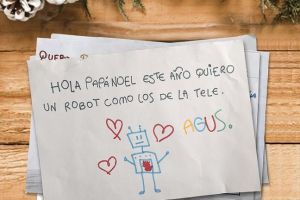 QUER
HOLA PAPÁNOEL ESTE AÑO QUIERO
UN ROBOT COMO LOS DE LA TELE.
AGUS.